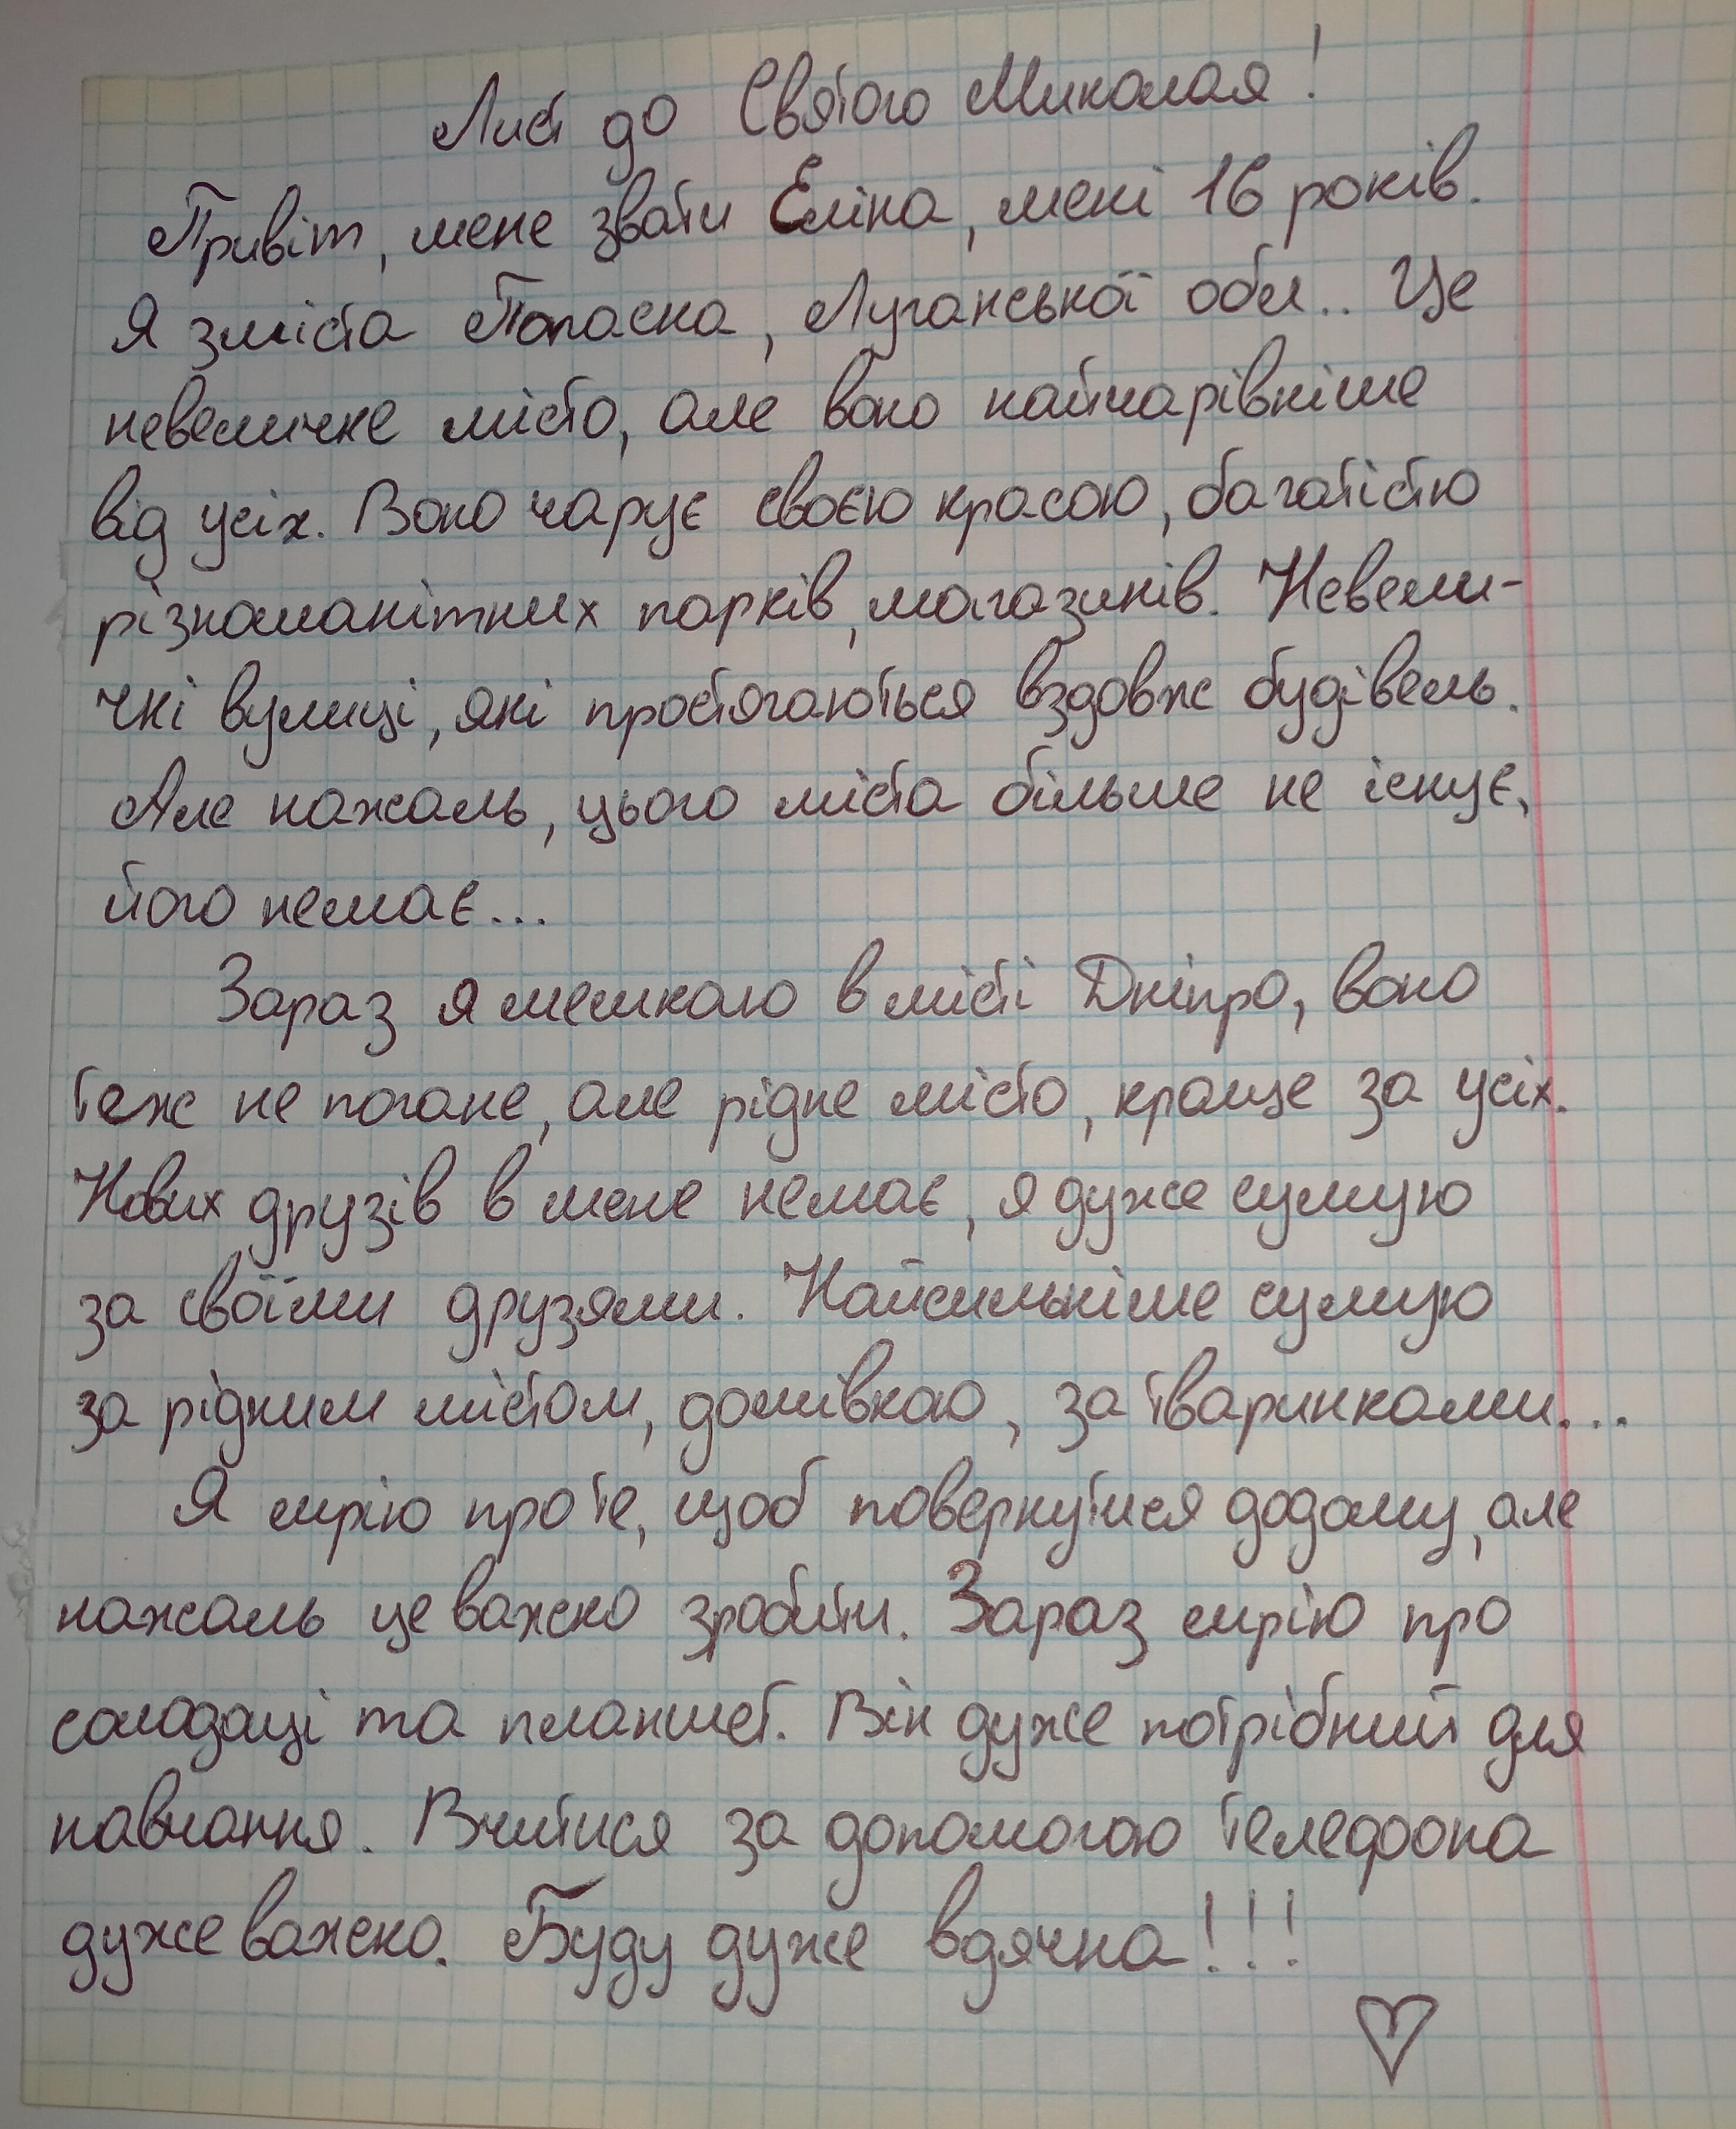 Лист до Святого Миколая!
Привіт, мене звати Еліна, мені 16 років.
Я зміста Попасна, Луганської обл.. Це
невеличке місто, але воно найчарівніше
від усіх. Воно чарує своєю красою, багатістю
різноманітних парків, магазинів. Невели-
чкі вулиці, які простягаються вздовж будівель.
Але нажаль, цього міста більше не існує,
його немає...
Зараз я мешкаю в місті Дніпро, воно
теж не погане, але рідне місто, краще за усіх.
Нових друзів в мене немає, я дуже сумую
за своїми друзями. Найсильніше сумую
за рідним містом, домівкою, за тваринками...
Я мрію про те, щоб повернутися додому, але
нажаль це важко зробити. Зараз мрію про
солодощі та планшет. Він дуже потрібний для
навчання. Вчитися за допомогою телефона
дуже важко. Буду дуже вдячна!!!